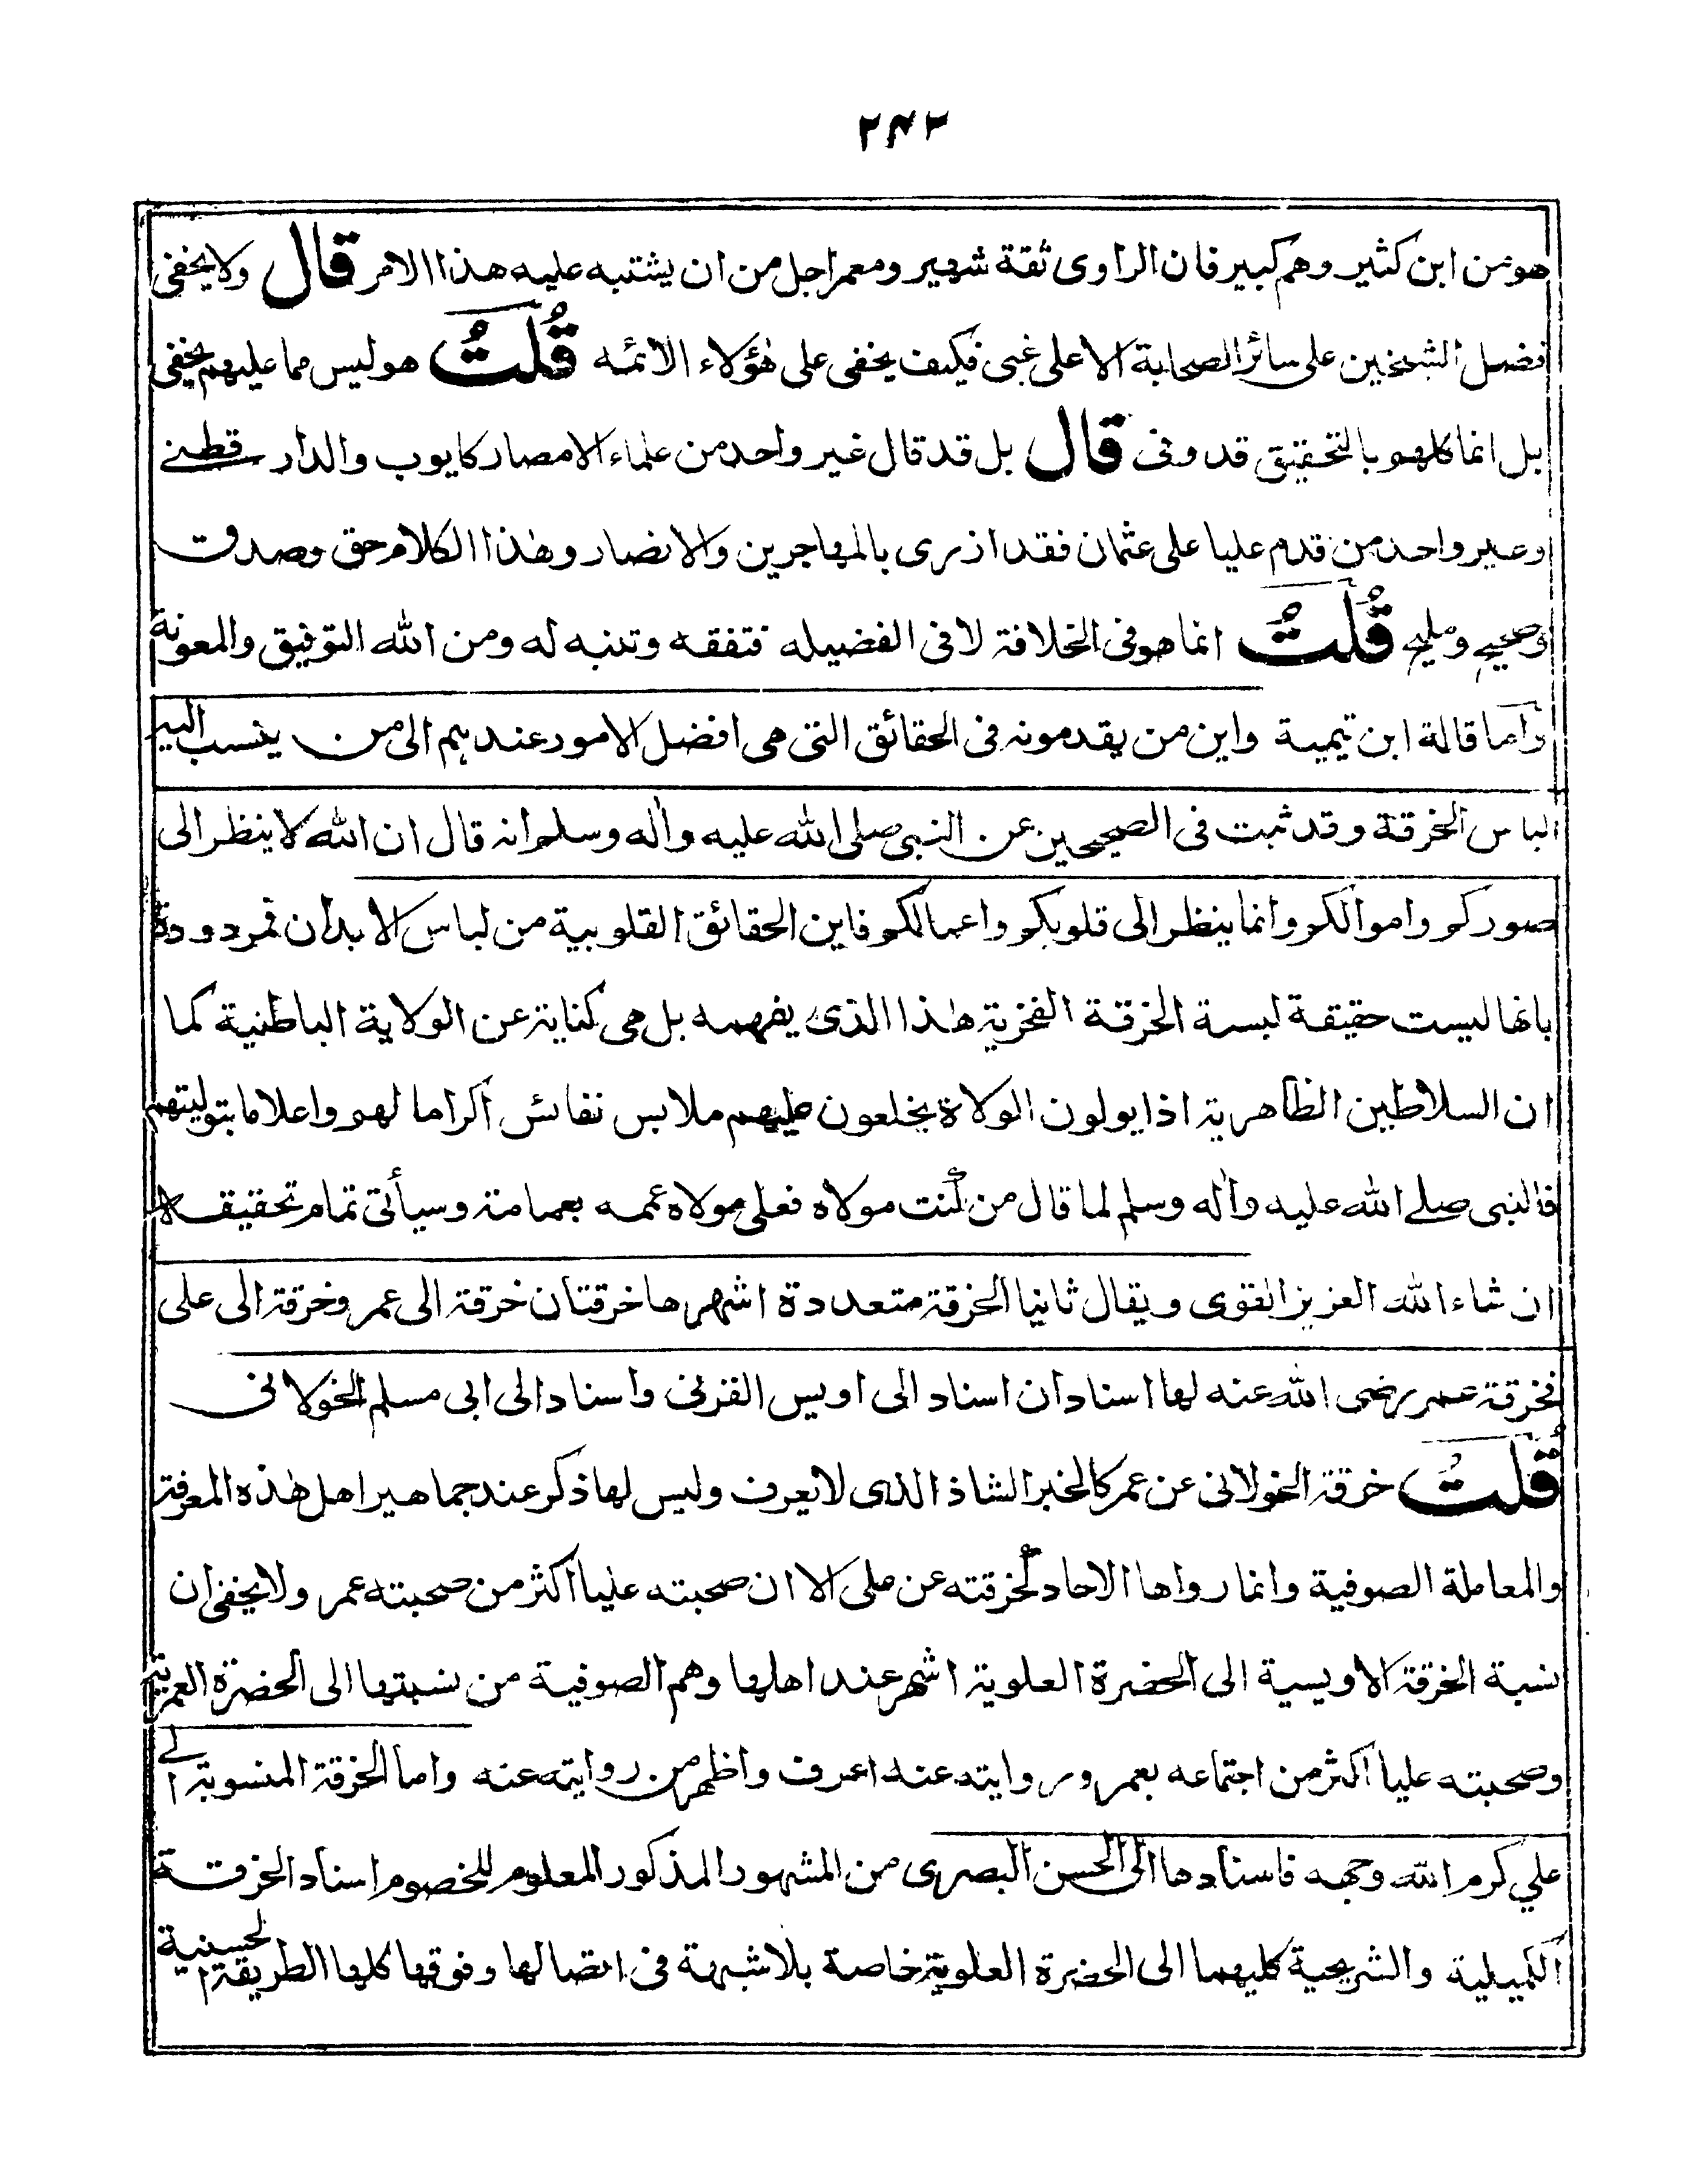 ٢٤٢
هو من ابن كثير وهم كبير فان الراوى ثقة شهير ومعمر اجل من ان يشتبه عليه هذا الامر قال ولا يخفى
فضل الشيخين على سائر الصحابة الا على غبى فكيف يخفى على هؤلاء الائمه قُلتُ هو ليس مما عليهم يخفى
بل انما كلهم بالتحقيق قد وفى قال بل قد قال غير واحد من علماء الامصار كايوب والدار قطنے
وغير واحد من قدم عليا على عثمان فقد ازرى بالمهاجرين والانصار وهذا الكلام حق وصدق
وصحيح ومليح قُلتُ انما هو فى الخلافة لا فى الفضيله فتفقه وتنبه له ومن الله التوفيق والمعونة
واما قالة ابن تيمية واين من يقدمونه فى الحقائق التى هى افضل الامور عندهم الى من ينسب اليه
الباس الخرقة وقد ثبت فى الصحيحين عن النبى صلى الله عليه واله وسلم انه قال ان الله لا ينظر الى
صوركم واموالكم وانما ينظر الى قلوبكم واعمالكم فاين الحقائق القلوبية من لباس الابدان فمردودة
بانها ليست حقيقة لبسة الخرقة الفخرية هذا الذى يفهمه بل هى كناية عن الولاية الباطنية كما
ان السلاطين الظاهرية اذا يولون الولاة يخلعون عليهم ملابس نفائس اكراما لهم واعلاما بتوليتهم
فالنبى صلے الله عليه واله وسلم لما قال من كنت مولاه فعلى مولاه عممه بعمامة وسيأتى تمام تحقيقه
ان شاء الله العزيز القوى ويقال ثانيا الخرقة متعددة اشهرها خرقتان خرقة الى عمر وخرقة الى على
فخرقة عمر رضى الله عنه لها اسنادان اسناد الى اويس القرنى واسناد الى ابى مسلم الخولانى
قُلتُ خرقة الخولانى عن عمر كالخبر الشاذ الذى لا يعرف وليس لها ذكر عند جماهير اهل هذه المعرفة
والمعاملة الصوفية وانما رواها الاحاد كخرقته عن على الا ان صحبته عليا اكثر من صحبته عمر ولا يخفى ان
نسبة الخرقة الاويسية الى الحضرة العلوية اشهر عند اهلها وهم الصوفية من نسبتها الى الحضرة العمرية
وصحبته عليا اكثر من اجتماعه بعمر وروايته عنه اعرف واظهر من روايته عنه واما الخرقة المنسوبة الے
علي كرم الله وجهه فاسنادها الى الحسن البصرى من المشهور المذكور المعلوم للخصوم اسناد الخرقة
الكميلية والشريحية كليهما الى الحضرة العلوية خاصة بلا شبهة فى اتصالها وفوقها كلها الطريقة الحسنية